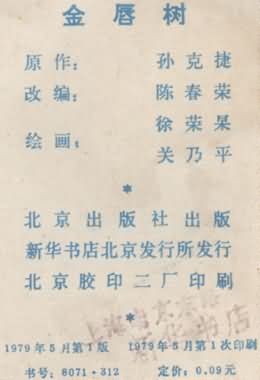 金唇树
原作：孙克捷
改编：陈春荣
绘画：徐荣杲
关乃平
*
北京出版社出版
新华书店北京发行所发行
北京胶印二厂印刷
*
1979年5月第1版 1979年5月第1次印刷
书号：8071·312 定价：0.09元
书店